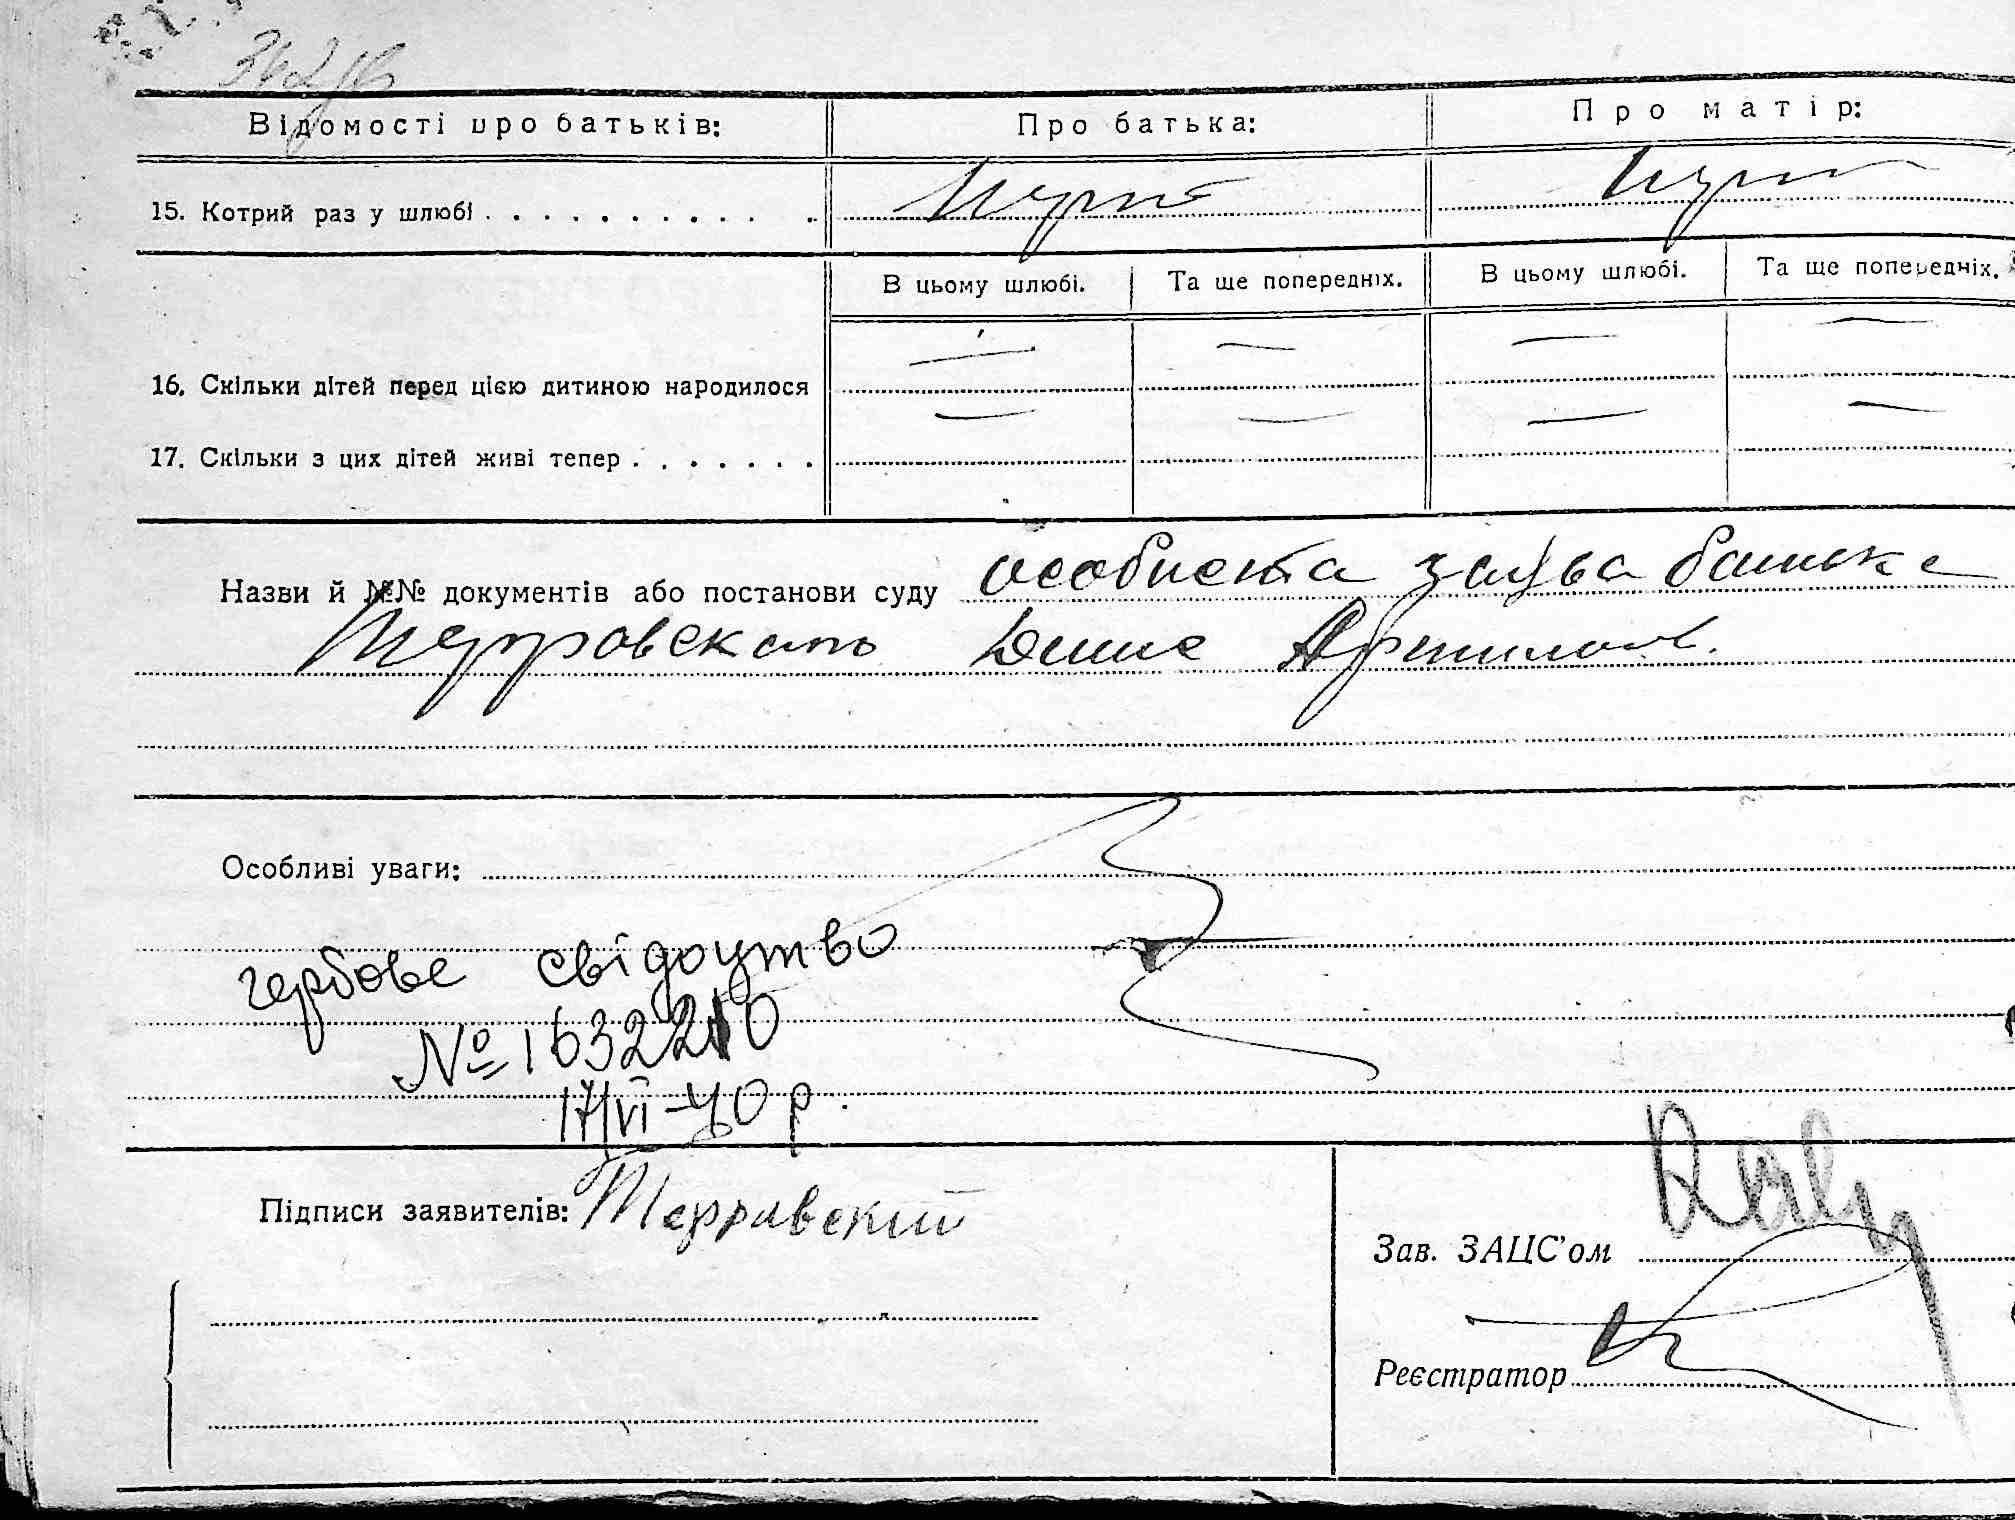 Відомості про батьків: Про батька: Про матір:
15. Котрий раз у шлюбі
В цьому шлюбі. Та ще попередніх. В цьому шлюбі. Та ще попередніх.
16. Скільки дітей перед цією дитиною народилося — — — —
17. Скільки з цих дітей живі тепер — — — —
Назви й №№ документів або постанови суду особиста заява батька
Особливі уваги:
гербове свідоцтво
№ 1632210
17/VI-40 р.
Підписи заявителів:
Зав. ЗАЦС'ом
Реєстратор